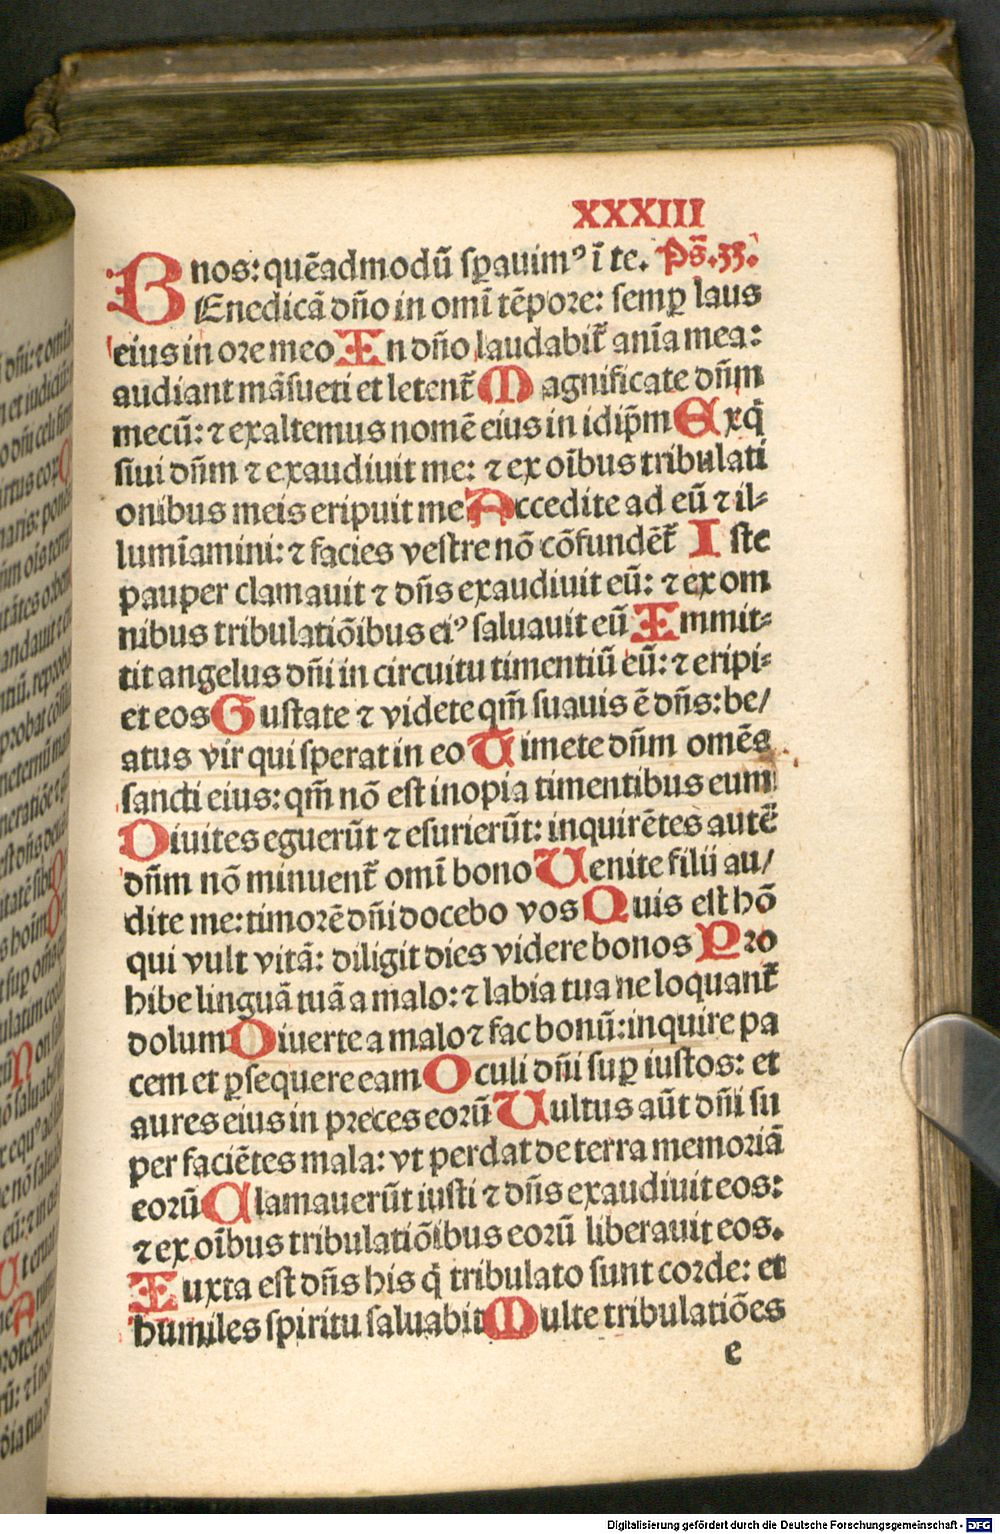 XXXIII
nos: quēadmodū sꝑauimꝰ ī te. Ps̄. 33.
BEnedicā dn̄o in omī tēpore: semꝑ laus
eius in ore meo In dn̄o laudabit̄ anīa mea:
audiant māsueti et letent̄ Magnificate dn̄m
mecū: ⁊ exaltemus nomē eius in idip̄m Exq̄
siui dn̄m ⁊ exaudiuit me: ⁊ ex oībus tribulati
onibus meis eripuit me Accedite ad eū ⁊ il⸗
lumīamini: ⁊ facies vestre nō cōfundēt̄ Iste
pauper clamauit ⁊ dn̄s exaudiuit eū: ⁊ ex om
nibus tribulatiōibus eiꝰ saluauit eū Immit⸗
tit angelus dn̄i in circuitu timentiū eū: ⁊ eripi⸗
et eos Gustate ⁊ videte qm̄ suauis ē dn̄s: be/
atus vir qui sperat in eo Timete dn̄m omēs
sancti eius: qm̄ nō est inopia timentibus eum
Diuites eguerūt ⁊ esurierūt: inquirētes autē
dn̄m nō minuent̄ omī bono Uenite filii au/
dite me: timorē dn̄i docebo vos Quis est hō
qui vult vitā: diligit dies videre bonos Pro
hibe linguā tuā a malo: ⁊ labia tua ne loquant̄
dolum Diuerte a malo ⁊ fac bonū: inquire pa
cem et ꝑsequere eam Oculi dn̄i suꝑ iustos: et
aures eius in preces eorū Uultus aūt dn̄i su
per faciētes mala: vt perdat de terra memoriā
eorū Clamauerūt iusti ⁊ dn̄s exaudiuit eos:
⁊ ex oībus tribulatiōibus eorū liberauit eos.
Iuxta est dn̄s his q̄ tribulato sunt corde: et
humiles spiritu saluabit Multe tribulatiōes
e
Digitalisierung gefördert durch die Deutsche Forschungsgemeinschaft - DFG